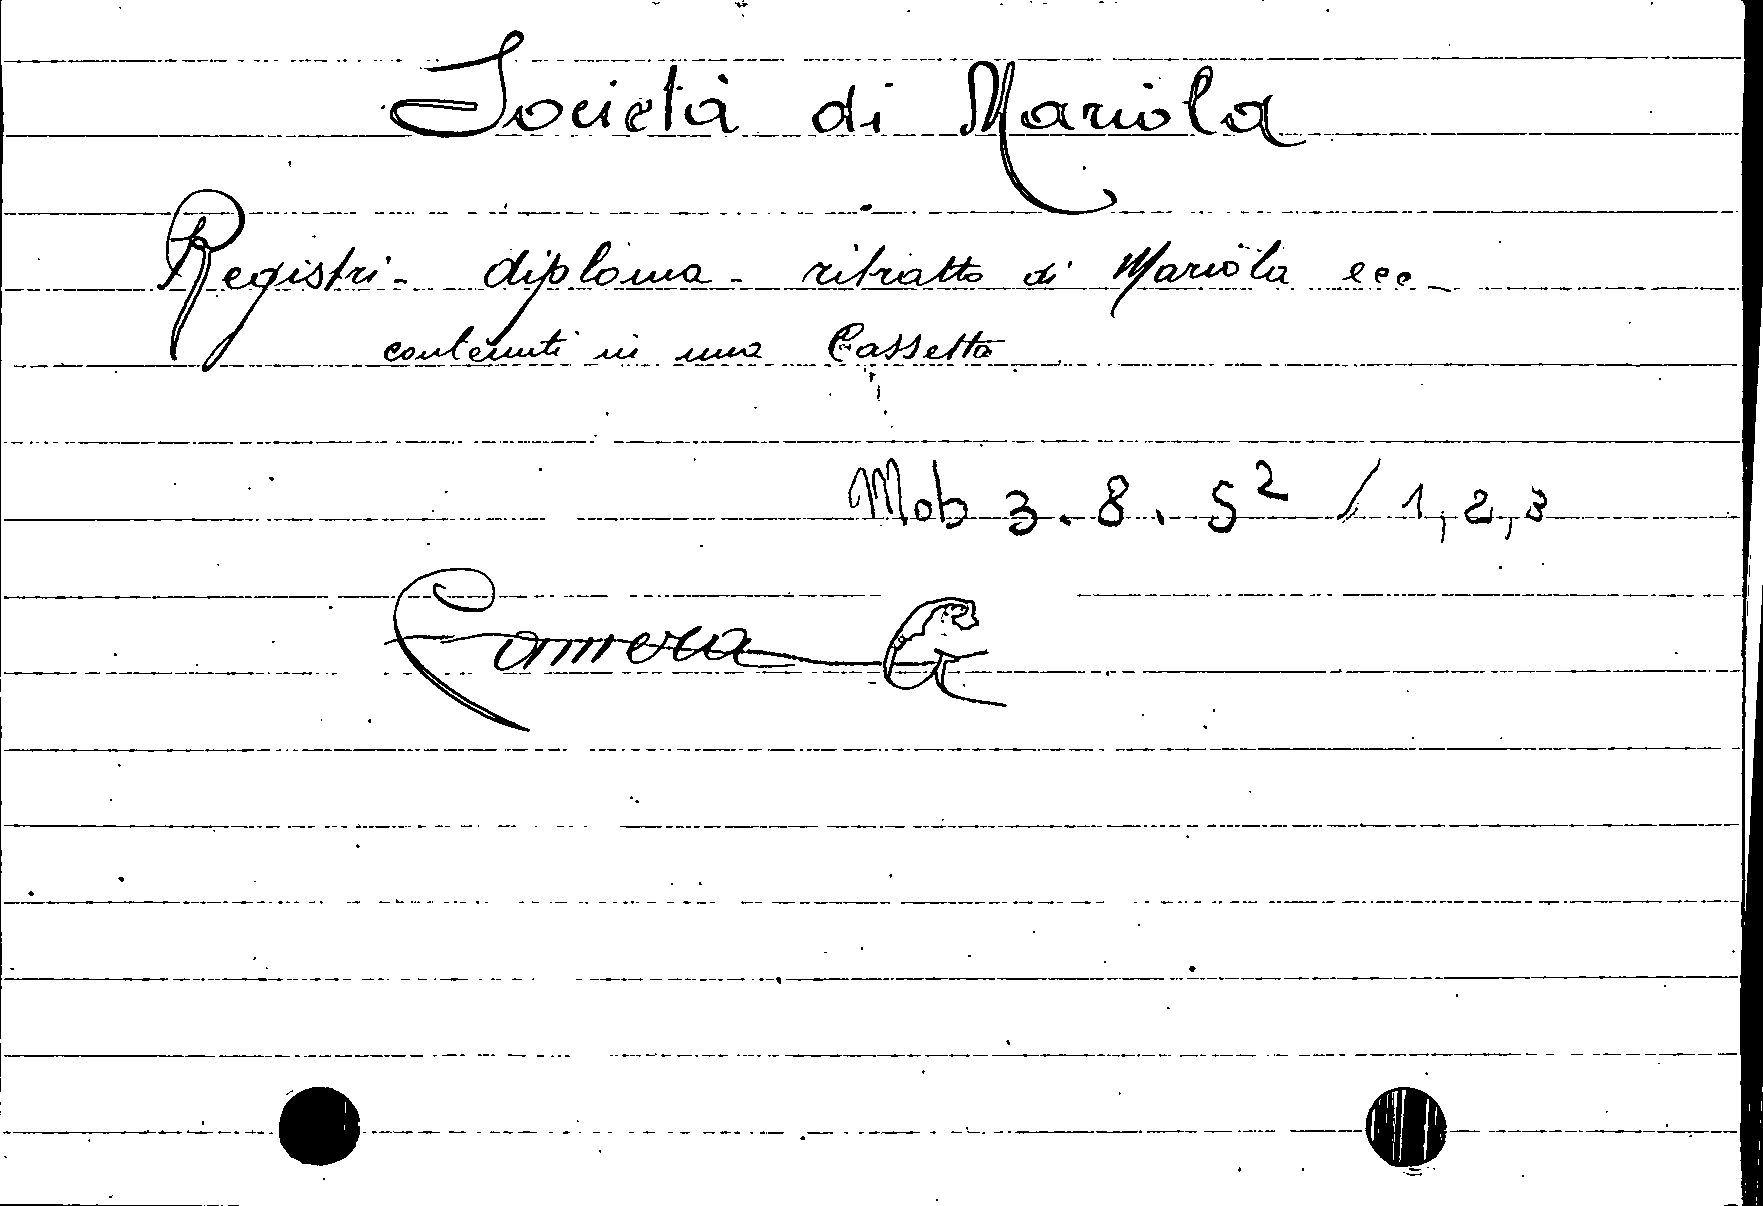 Società di Mariòla
Registri - diploma - ritratto di Mariòla ecc -
contenuti in una Cassetta
Mob 3. 8. 5² / 1, 2, 3
Camera G